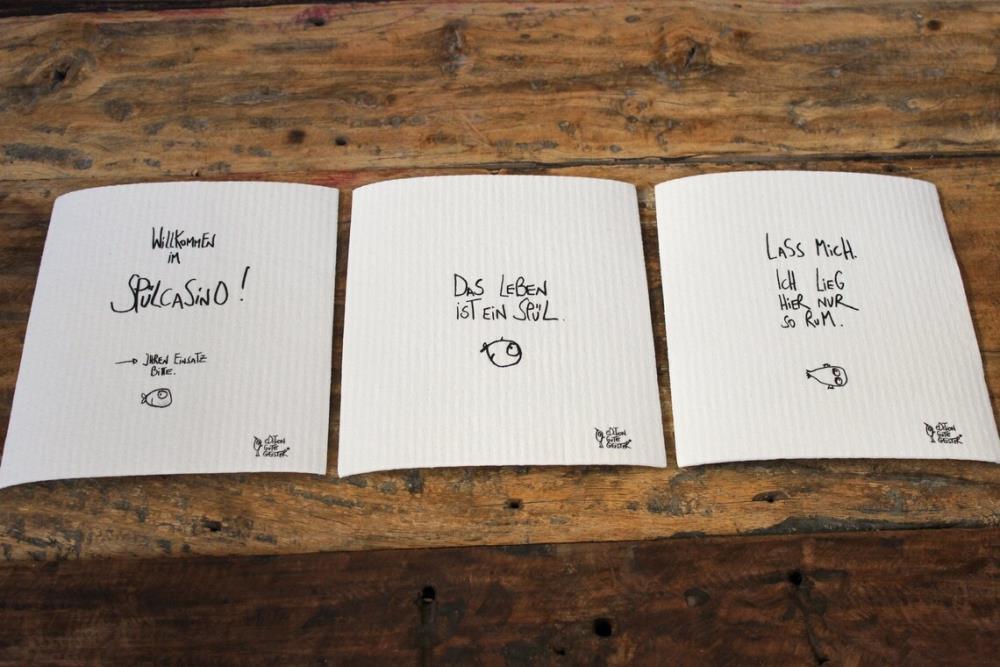 Willkommen
im
Spülcasino!
Ihren Einsatz
Bitte.
Edition
Gute
Geister
Das Leben
ist ein Spül.
Edition
Gute
Geister
Lass mich.
Ich lieg
hier nur
so rum.
Edition
Gute
Geister